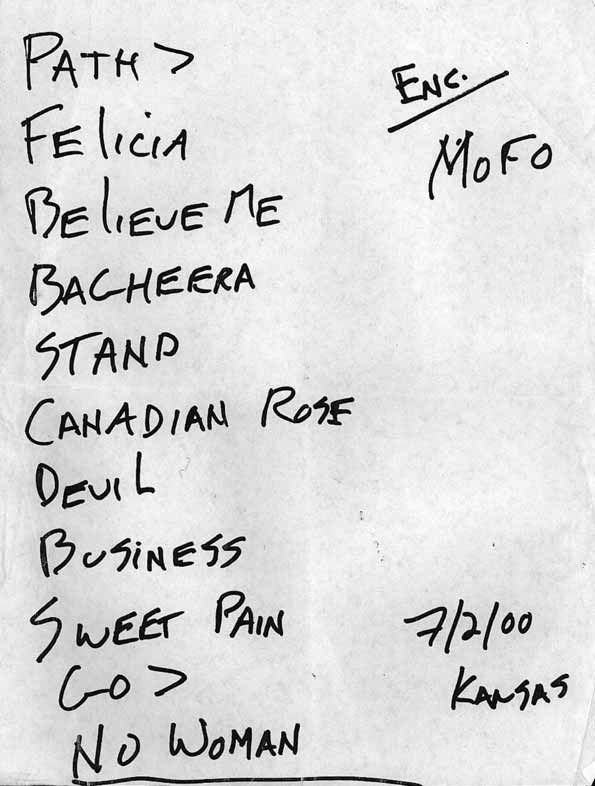 PATH >
FELICIA
BELIEVE ME
BAGHEERA
STAND
CANADIAN ROSE
DEVIL
BUSINESS
SWEET PAIN
GO >
NO WOMAN
ENC.
MOFO
7/2/00
KANSAS